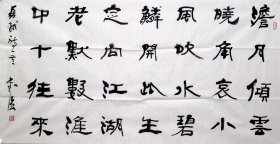 澹月傾雲
曉角哀小
風吹水碧
鱗開此生
定向江湖
老默數淮
中十往來
蘇軾詩